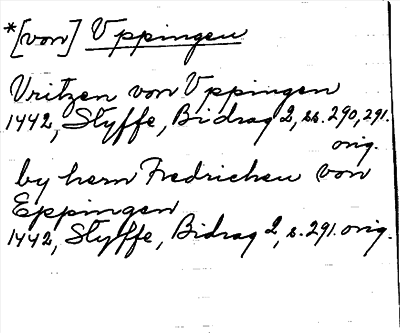 *[von] Vppingen
Vritzen von Vppingen
1442, Styffe, Bidrag 2, ss. 290, 291.
orig.
by hern Fredrichen von
Eppingen
1442, Styffe, Bidrag 2, s. 291. orig.